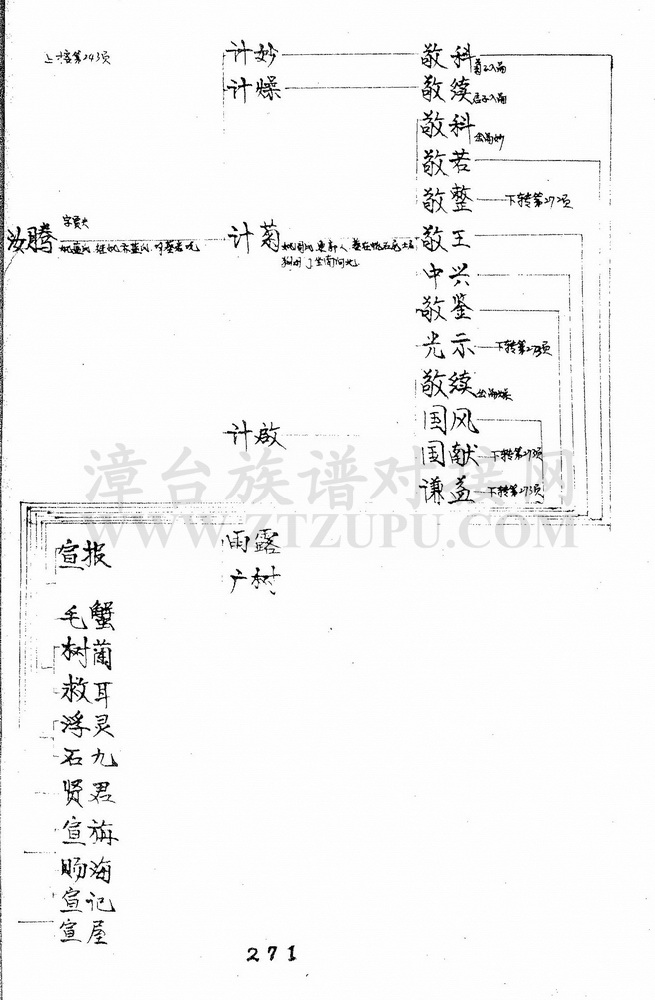 上接第243页
计妙 敬科
计燥 敬续
敬科 出嗣妙
敬若
敬整 下转第272页
汝腾 计菊 敬王
中兴
敬鉴
光示 下转第273页
敬续 出嗣燥
计啟 国风
国献 下转第273页
谦益 下转第273页
漳台族谱对接网
WWW.ZTZUPU.COM
宣报 雨露
广树
毛蟹
树菌
救耳
浮灵
石九
贤君
宣海
宣记
宣屋
271